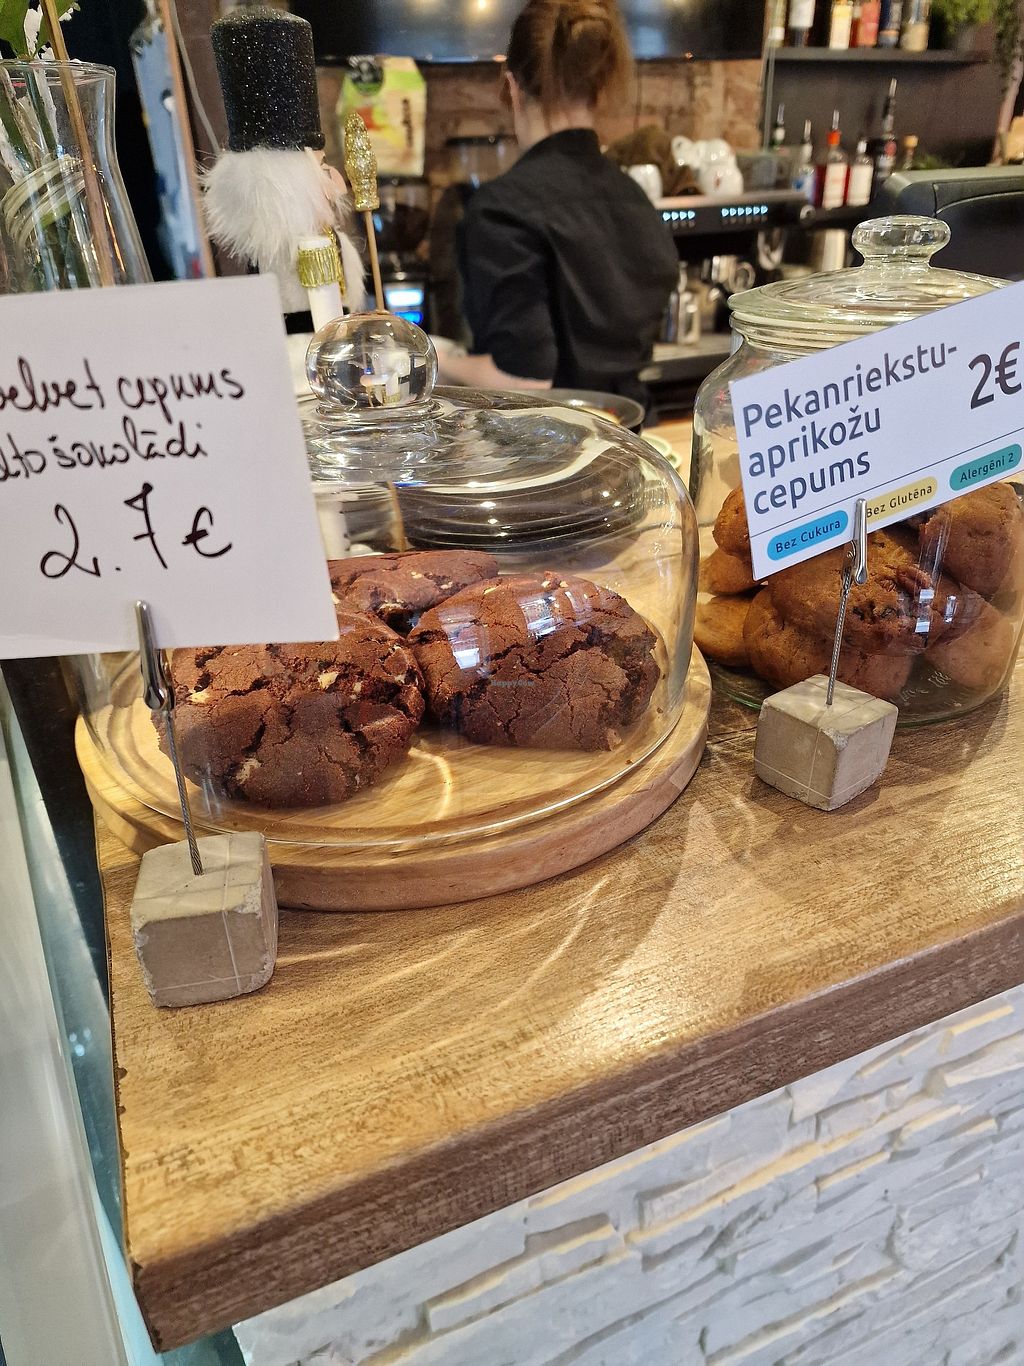 velvet cepums
šokolādi
2.7€
Pekanriekstu-
aprikožu
cepums
2€
Bez Cukura
Bez Glutēna
Alergēni 2
HappyCow